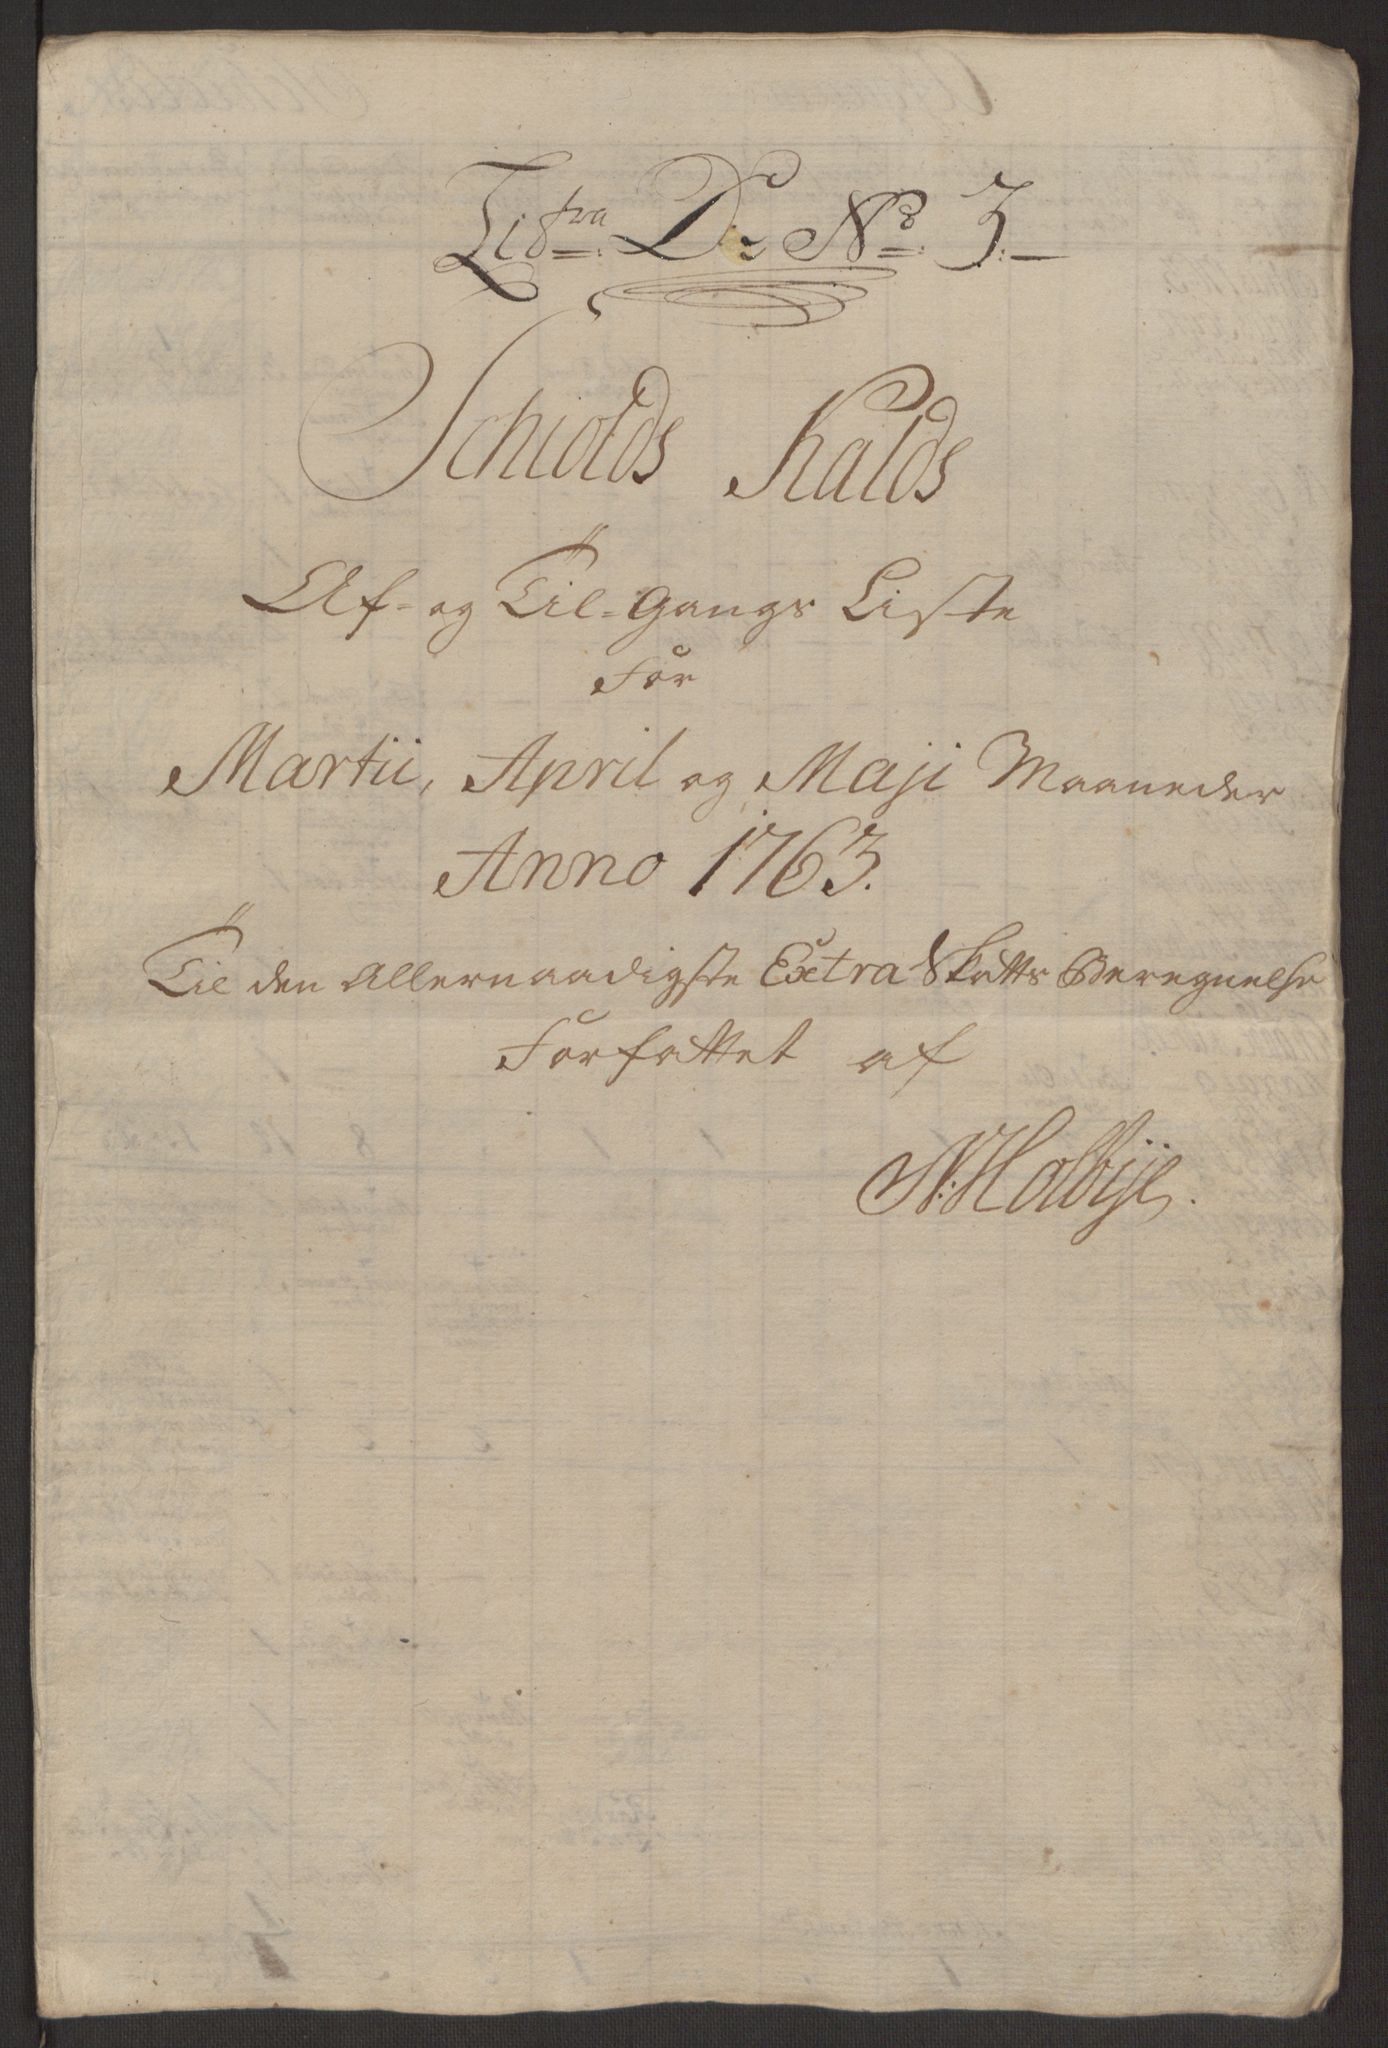 Litra D: No 3:
Schiolds Kalds
Af- og Til-Gangs Liste
For
Martii, April og Maji Maaneder
Anno 1763.
Til den Allernaadigste Extra Skatts Beregnelse
Forfattet af
N: Holbÿe.